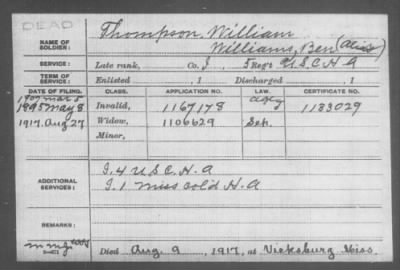 DEAD
NAME OF SOLDIER: Thompson, William
Williams, Ben (alias)
SERVICE: Late rank, Co. I, 5 Reg't U.S.C.H.A
TERM OF SERVICE: Enlisted , 1 Discharged , 1
DATE OF FILING. CLASS. APPLICATION NO. LAW. CERTIFICATE NO.
1907 Mar 5
1895 May 8 Invalid, 1167178 1183029
1917, Aug 27 Widow, 1106629 Sep.
Minor,
ADDITIONAL SERVICES: I. 4 U.S.C.H.A
I. 1 Miss Cold H.A
REMARKS:
Died Aug. 9, 1917, at Vicksburg Miss.